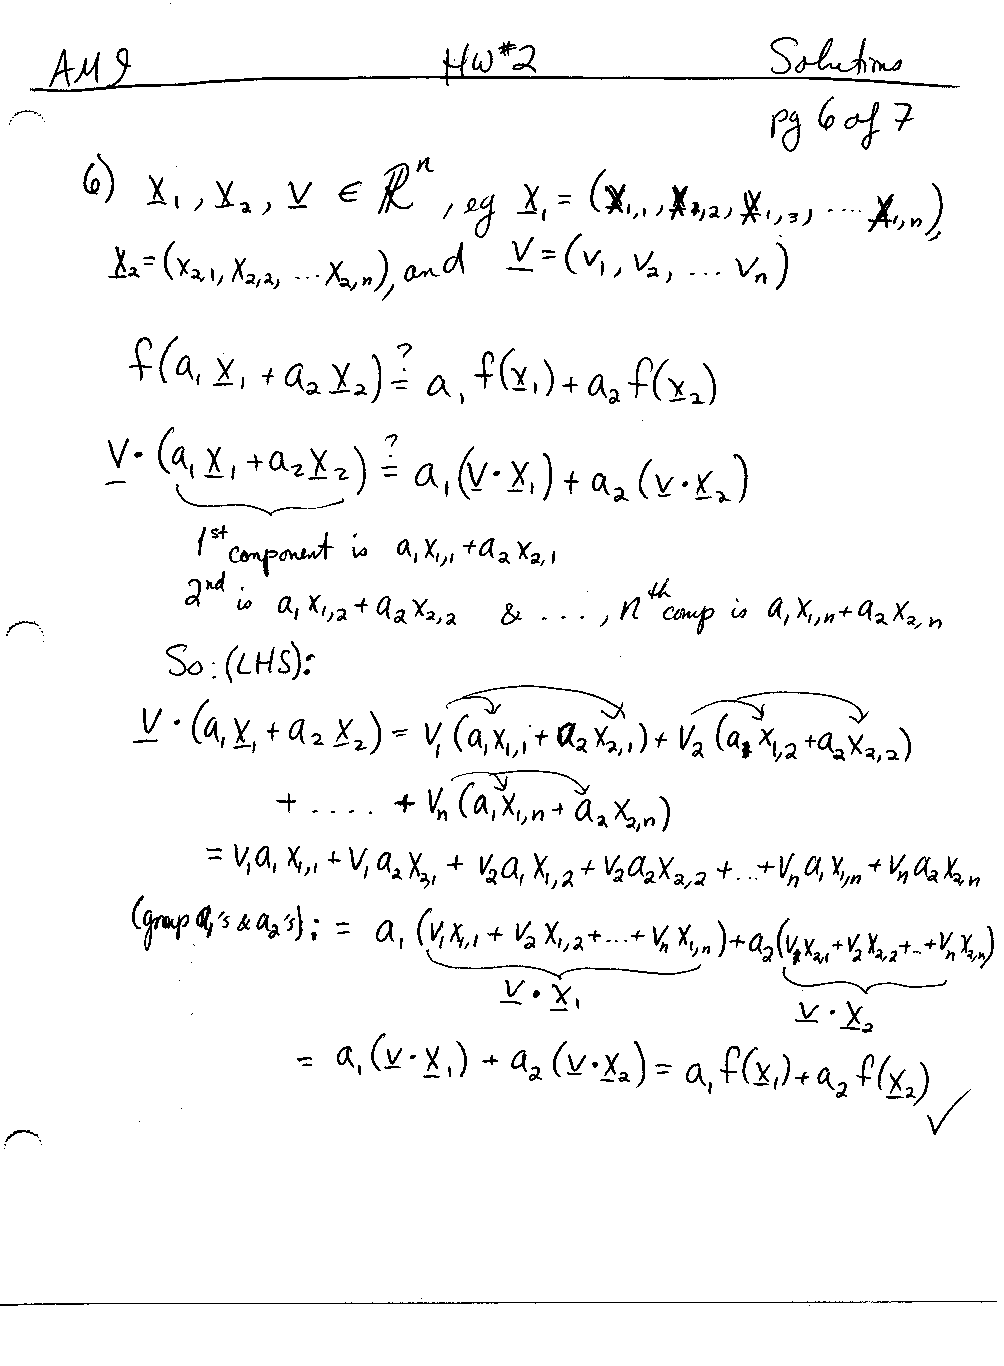 AM I HW#2 Solutions
pg 6 of 7
6) x₁, x₂, v ∈ ℝⁿ, eg x₁ = (x₁,₁, x₁,₂, x₁,₃, ... x₁,ₙ),
x₂ = (x₂,₁, x₂,₂, ... x₂,ₙ), and v = (v₁, v₂, ... vₙ)
f(a₁ x₁ + a₂ x₂) ?= a₁ f(x₁) + a₂ f(x₂)
v · (a₁ x₁ + a₂ x₂) ?= a₁ (v · x₁) + a₂ (v · x₂)
1st component is a₁ x₁,₁ + a₂ x₂,₁
2nd is a₁ x₁,₂ + a₂ x₂,₂ & ..., nth comp is a₁ x₁,ₙ + a₂ x₂,ₙ
So: (LHS):
v · (a₁ x₁ + a₂ x₂) = v₁ (a₁ x₁,₁ + a₂ x₂,₁) + v₂ (a₁ x₁,₂ + a₂ x₂,₂)
+ .... + vₙ (a₁ x₁,ₙ + a₂ x₂,ₙ)
= v₁ a₁ x₁,₁ + v₁ a₂ x₂,₁ + v₂ a₁ x₁,₂ + v₂ a₂ x₂,₂ + ... + vₙ a₁ x₁,ₙ + vₙ a₂ x₂,ₙ
(group a₁'s & a₂'s): = a₁ (v₁ x₁,₁ + v₂ x₁,₂ + ... + vₙ x₁,ₙ) + a₂ (v₁ x₂,₁ + v₂ x₂,₂ + ... + vₙ x₂,ₙ)
v · x₁ v · x₂
= a₁ (v · x₁) + a₂ (v · x₂) = a₁ f(x₁) + a₂ f(x₂) ✓